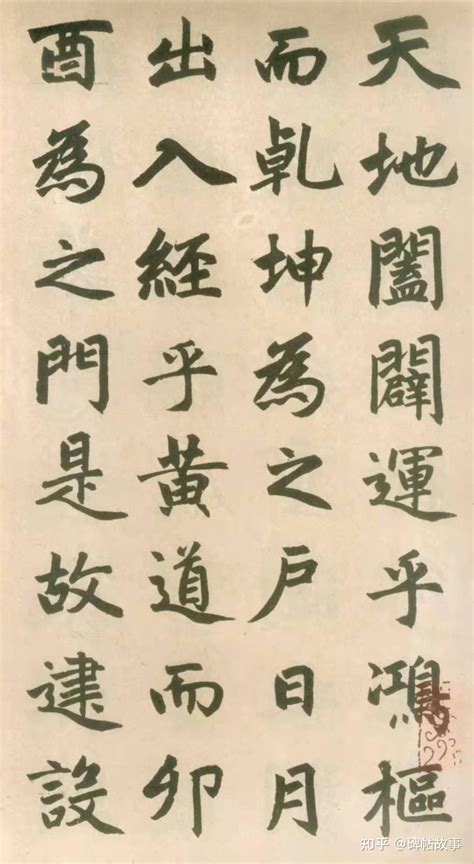 天地闔闢運乎鴻樞
而乹坤為之戶日月
出入經乎黃道而卯
酉為之門是故建設
知乎 @碑帖故事